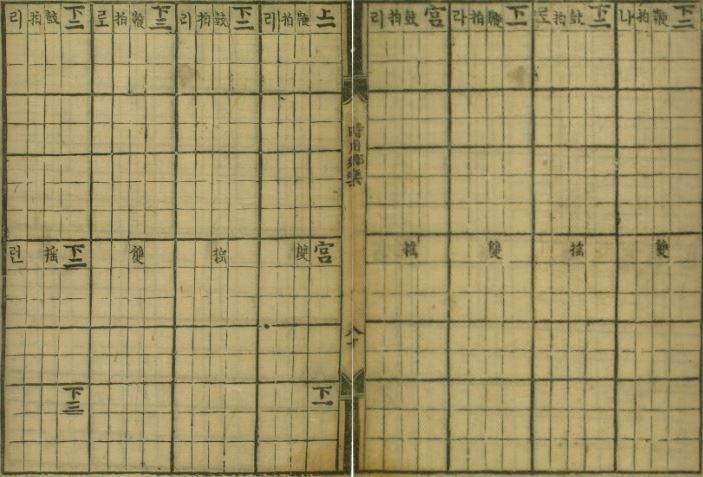 下二 鞭 拍 나
雙
下二 鼓 拍 로
搖
下二 鞭 拍 라
雙
宮 鼓 拍 리
搖
時用鄕樂
八十
上一 鞭 拍 리
宮 雙
下一
下二 鼓 拍 리
搖
下三 鞭 拍 로
雙
下二 鼓 拍 리
下二 搖 런
下三